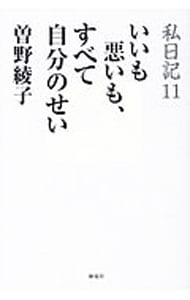 私日記11
いいも
悪いも、
すべて
自分のせい
曽野綾子